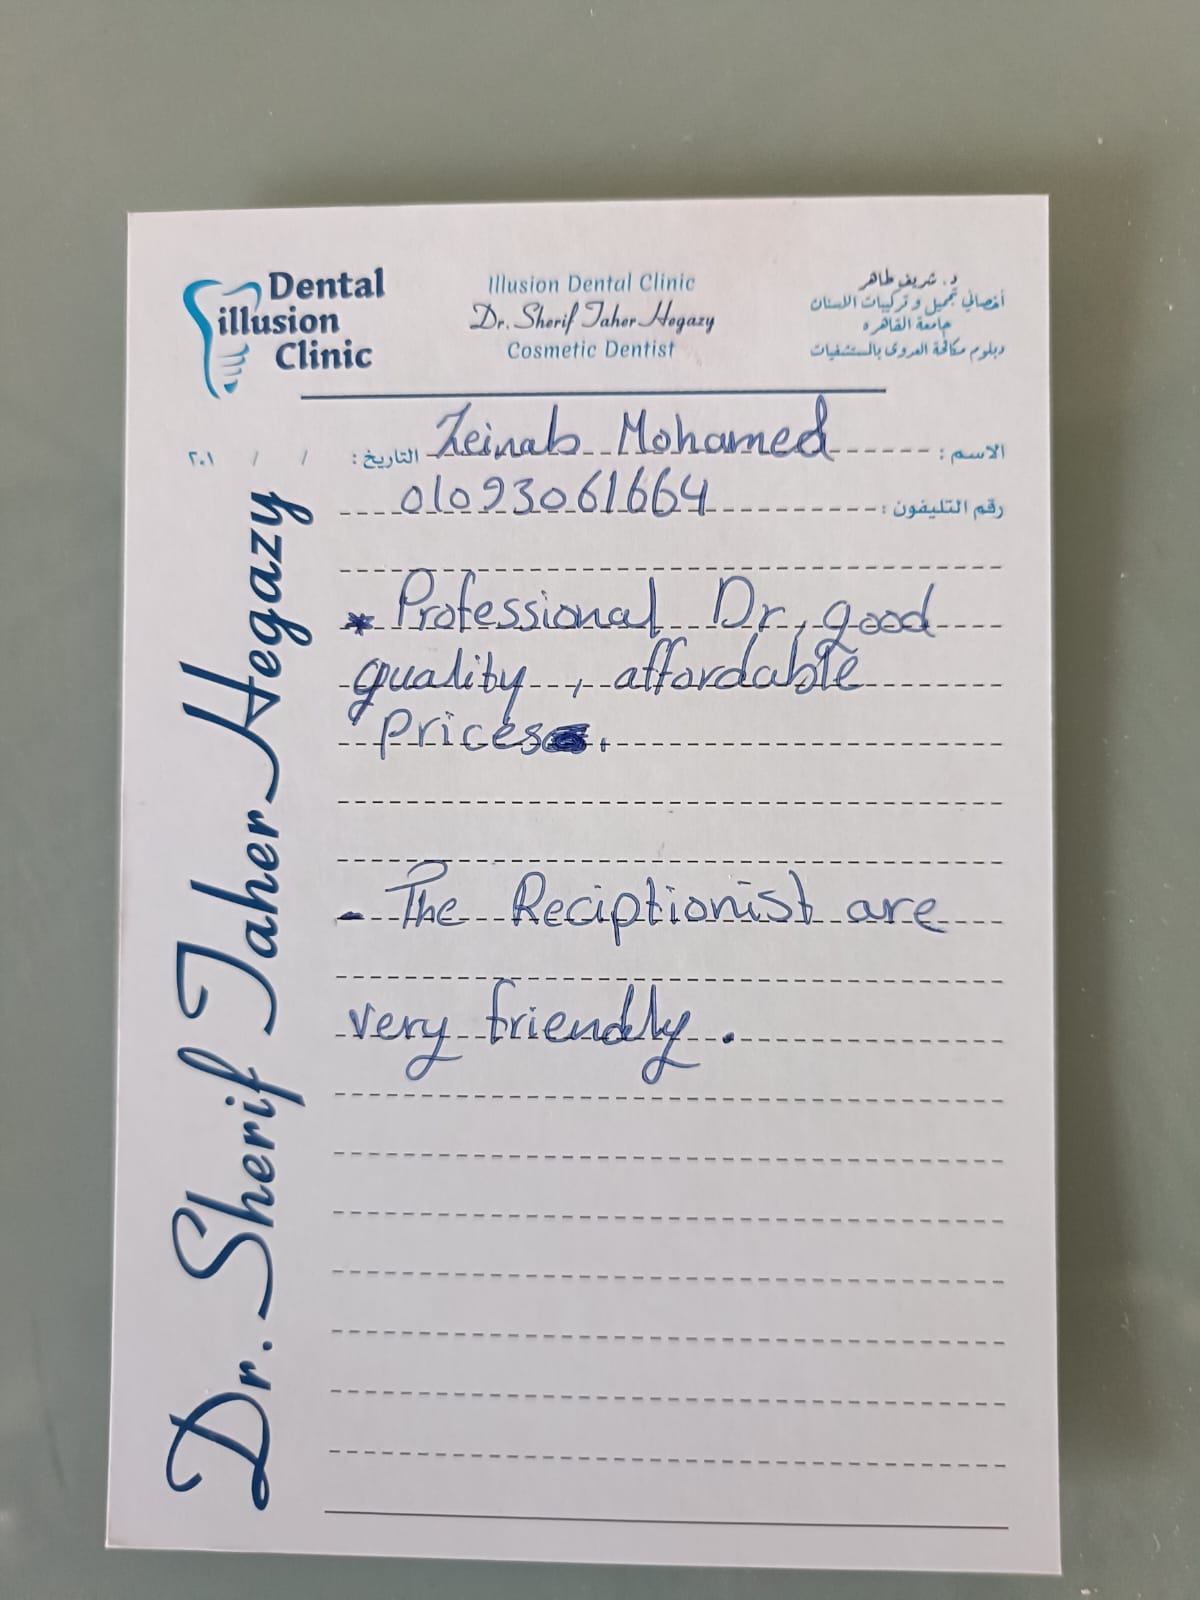 Dental
illusion
Clinic
Illusion Dental Clinic
Dr. Sherif Taher Hegazy
Cosmetic Dentist
د. شريف طاهر
أخصائي تجميل و تركيبات الاسنان
جامعة القاهره
دبلوم مكافحة العدوى بالمستشفيات
الاسم :
Zeinab Mohamed
التاريخ : / / ٢٠١
رقم التليفون :
01093061664
* Professional Dr, good
quality, affordable
prices.
- The Reciptionist are
very friendly.
Dr. Sherif Taher Hegazy